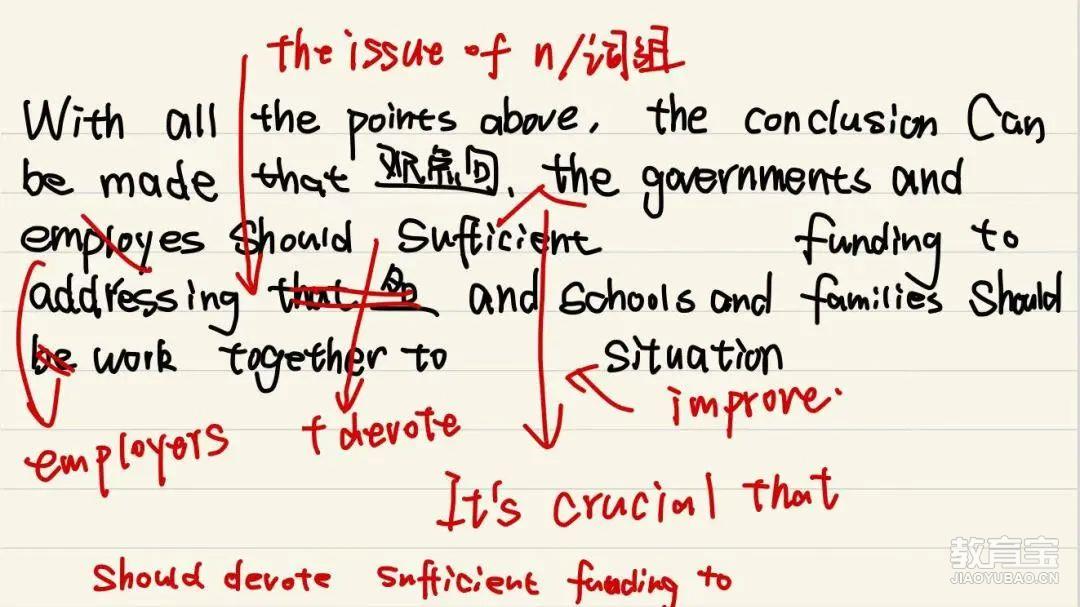 the issue of n/词组
With all the points above, the conclusion Can
be made that 观点句, the governments and
employes should Sufficient funding to
addressing that 句 and schools and families should
be work together to situation
improve.
employers + devote
It's crucial that
should devote sufficient funding to
教育宝
JIAOYUBAO.CN